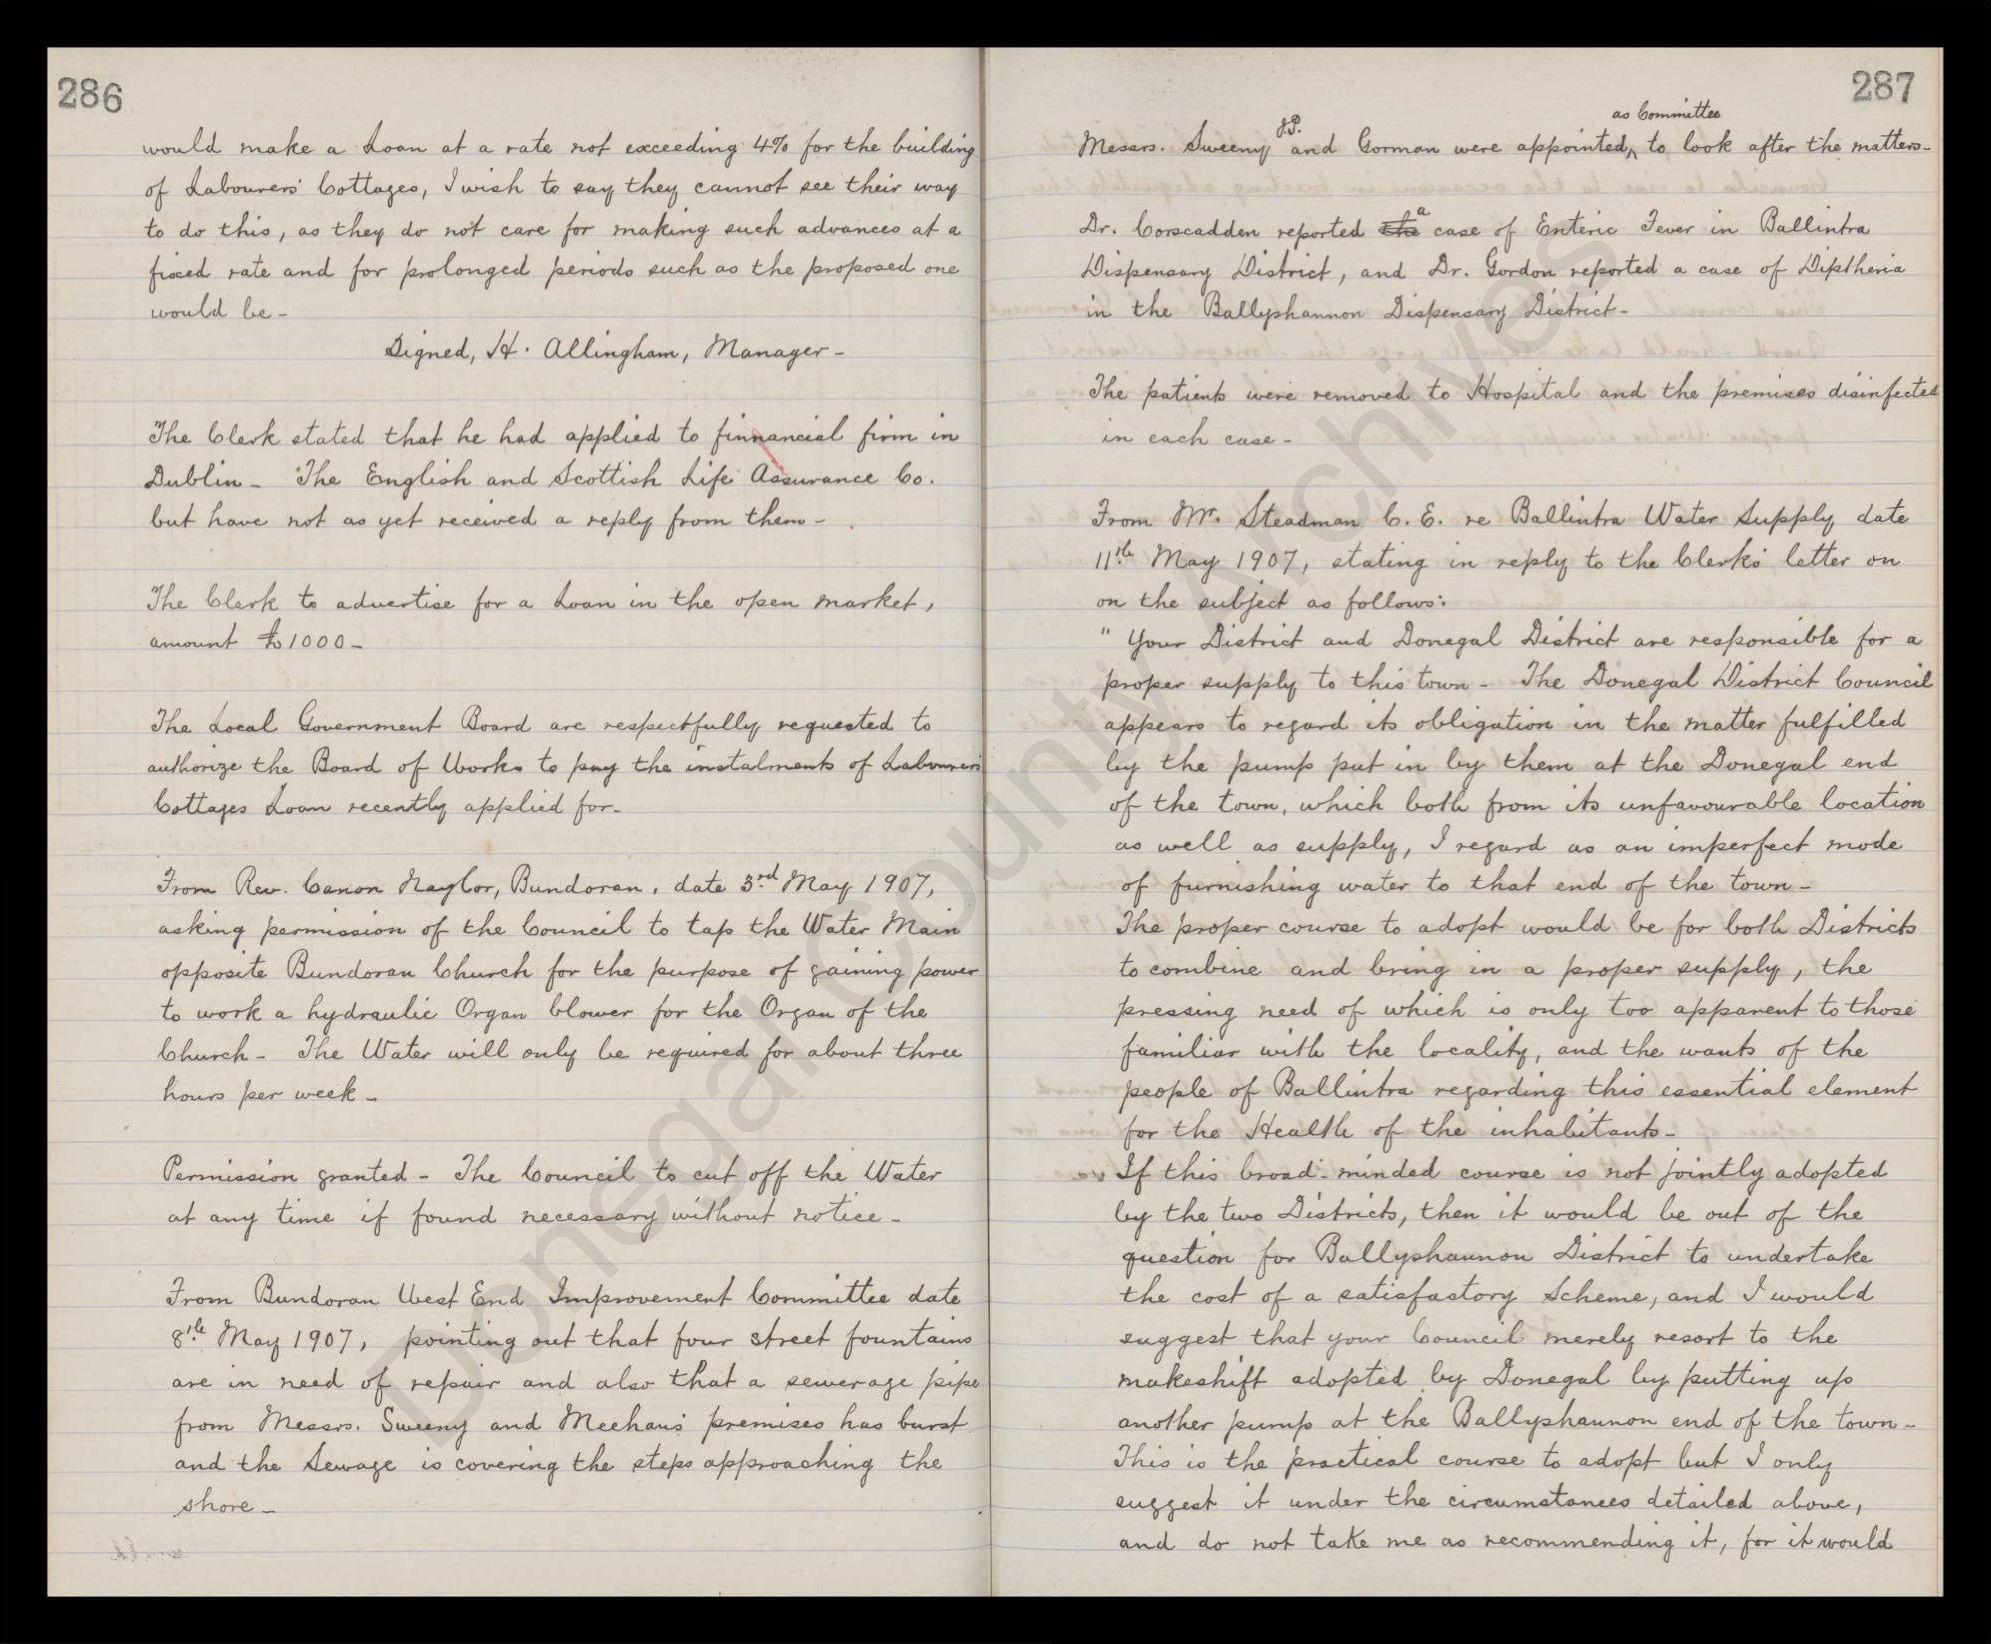 286
would make a Loan at a rate not exceeding 4% for the building
of Labourers' Cottages, I wish to say they cannot see their way
to do this, as they do not care for making such advances at a
fixed rate and for prolonged periods such as the proposed one
would be -
Signed, H. Allingham, Manager -
The Clerk stated that he had applied to finnancial firm in
Dublin - The English and Scottish Life Assurance Co.
but have not as yet received a reply from them -
The Clerk to advertise for a Loan in the open market,
amount £1000 -
The Local Government Board are respectfully requested to
authorize the Board of Works to pay the instalments of Labourers
Cottages Loan recently applied for -
From Rev. Canon Naylor, Bundoran, date 3rd May 1907,
asking permission of the Council to tap the Water Main
opposite Bundoran Church for the purpose of gaining power
to work a hydraulic Organ blower for the Organ of the
Church - The Water will only be required for about three
hours per week -
Permission granted - The Council to cut off the Water
at any time if found necessary without notice -
From Bundoran West End Improvement Committee date
8th May 1907, pointing out that four street fountains
are in need of repair and also that a sewerage pipe
from Messrs. Sweeny and Meehan's premises has burst
and the Sewage is covering the steps approaching the
shore -
287
Messrs. Sweeny J.P. and Gorman were appointed as Committee to look after the matters -
Dr. Corscadden reported the a case of Enteric Fever in Ballintra
Dispensary District, and Dr. Gordon reported a case of Diptheria
in the Ballyshannon Dispensary District -
The patients were removed to Hospital and the premises disinfected
in each case -
From Mr. Steadman C. E. re Ballintra Water Supply date
11th May 1907, stating in reply to the Clerk's letter on
on the subject as follows:
" Your District and Donegal District are responsible for a
proper supply to this town - The Donegal District Council
appears to regard its obligation in the matter fulfilled
by the pump put in by them at the Donegal end
of the town, which both from its unfavourable location
as well as supply, I regard as an imperfect mode
of furnishing water to that end of the town -
The proper course to adopt would be for both Districts
to combine and bring in a proper supply, the
pressing need of which is only too apparent to those
familiar with the locality, and the wants of the
people of Ballintra regarding this essential element
for the Health of the inhabitants -
If this broad-minded course is not jointly adopted
by the two Districts, then it would be out of the
question for Ballyshannon District to undertake
the cost of a satisfactory Scheme, and I would
suggest that your Council merely resort to the
makeshift adopted by Donegal by putting up
another pump at the Ballyshannon end of the town -
This is the practical course to adopt but I only
suggest it under the circumstances detailed above,
and do not take me as recommending it, for it would
Donegal County Archives